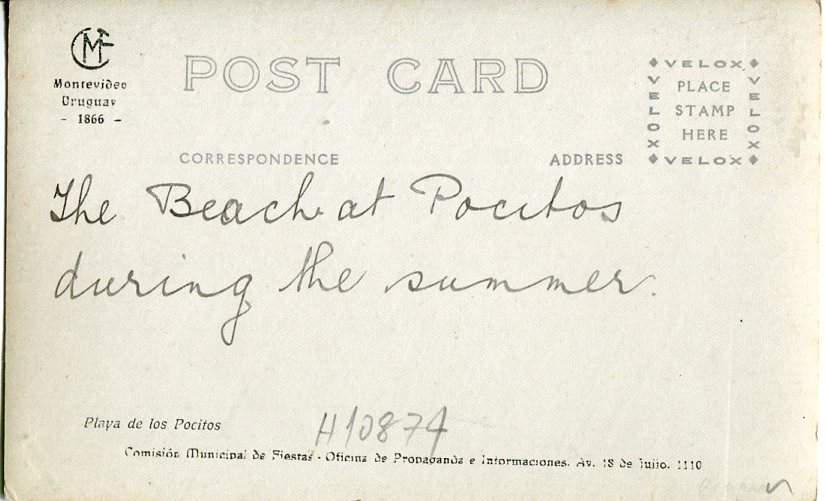 CMF
Montevideo
Uruguay
- 1866 -
POST CARD
VELOX
VELOX
PLACE
STAMP
HERE
VELOX
VELOX
CORRESPONDENCE ADDRESS
The Beach at Pocitos
during the summer.
H10874
Playa de los Pocitos
Comisión Municipal de Fiestas - Oficina de Propaganda e Informaciones. Av. 18 de Julio. 1110